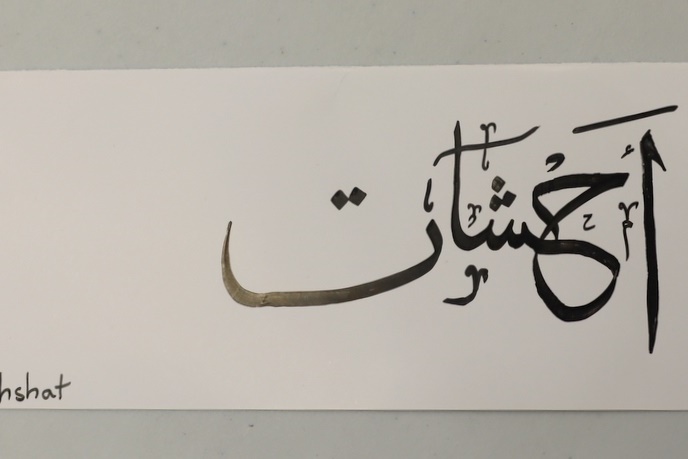 أحشات
hshat